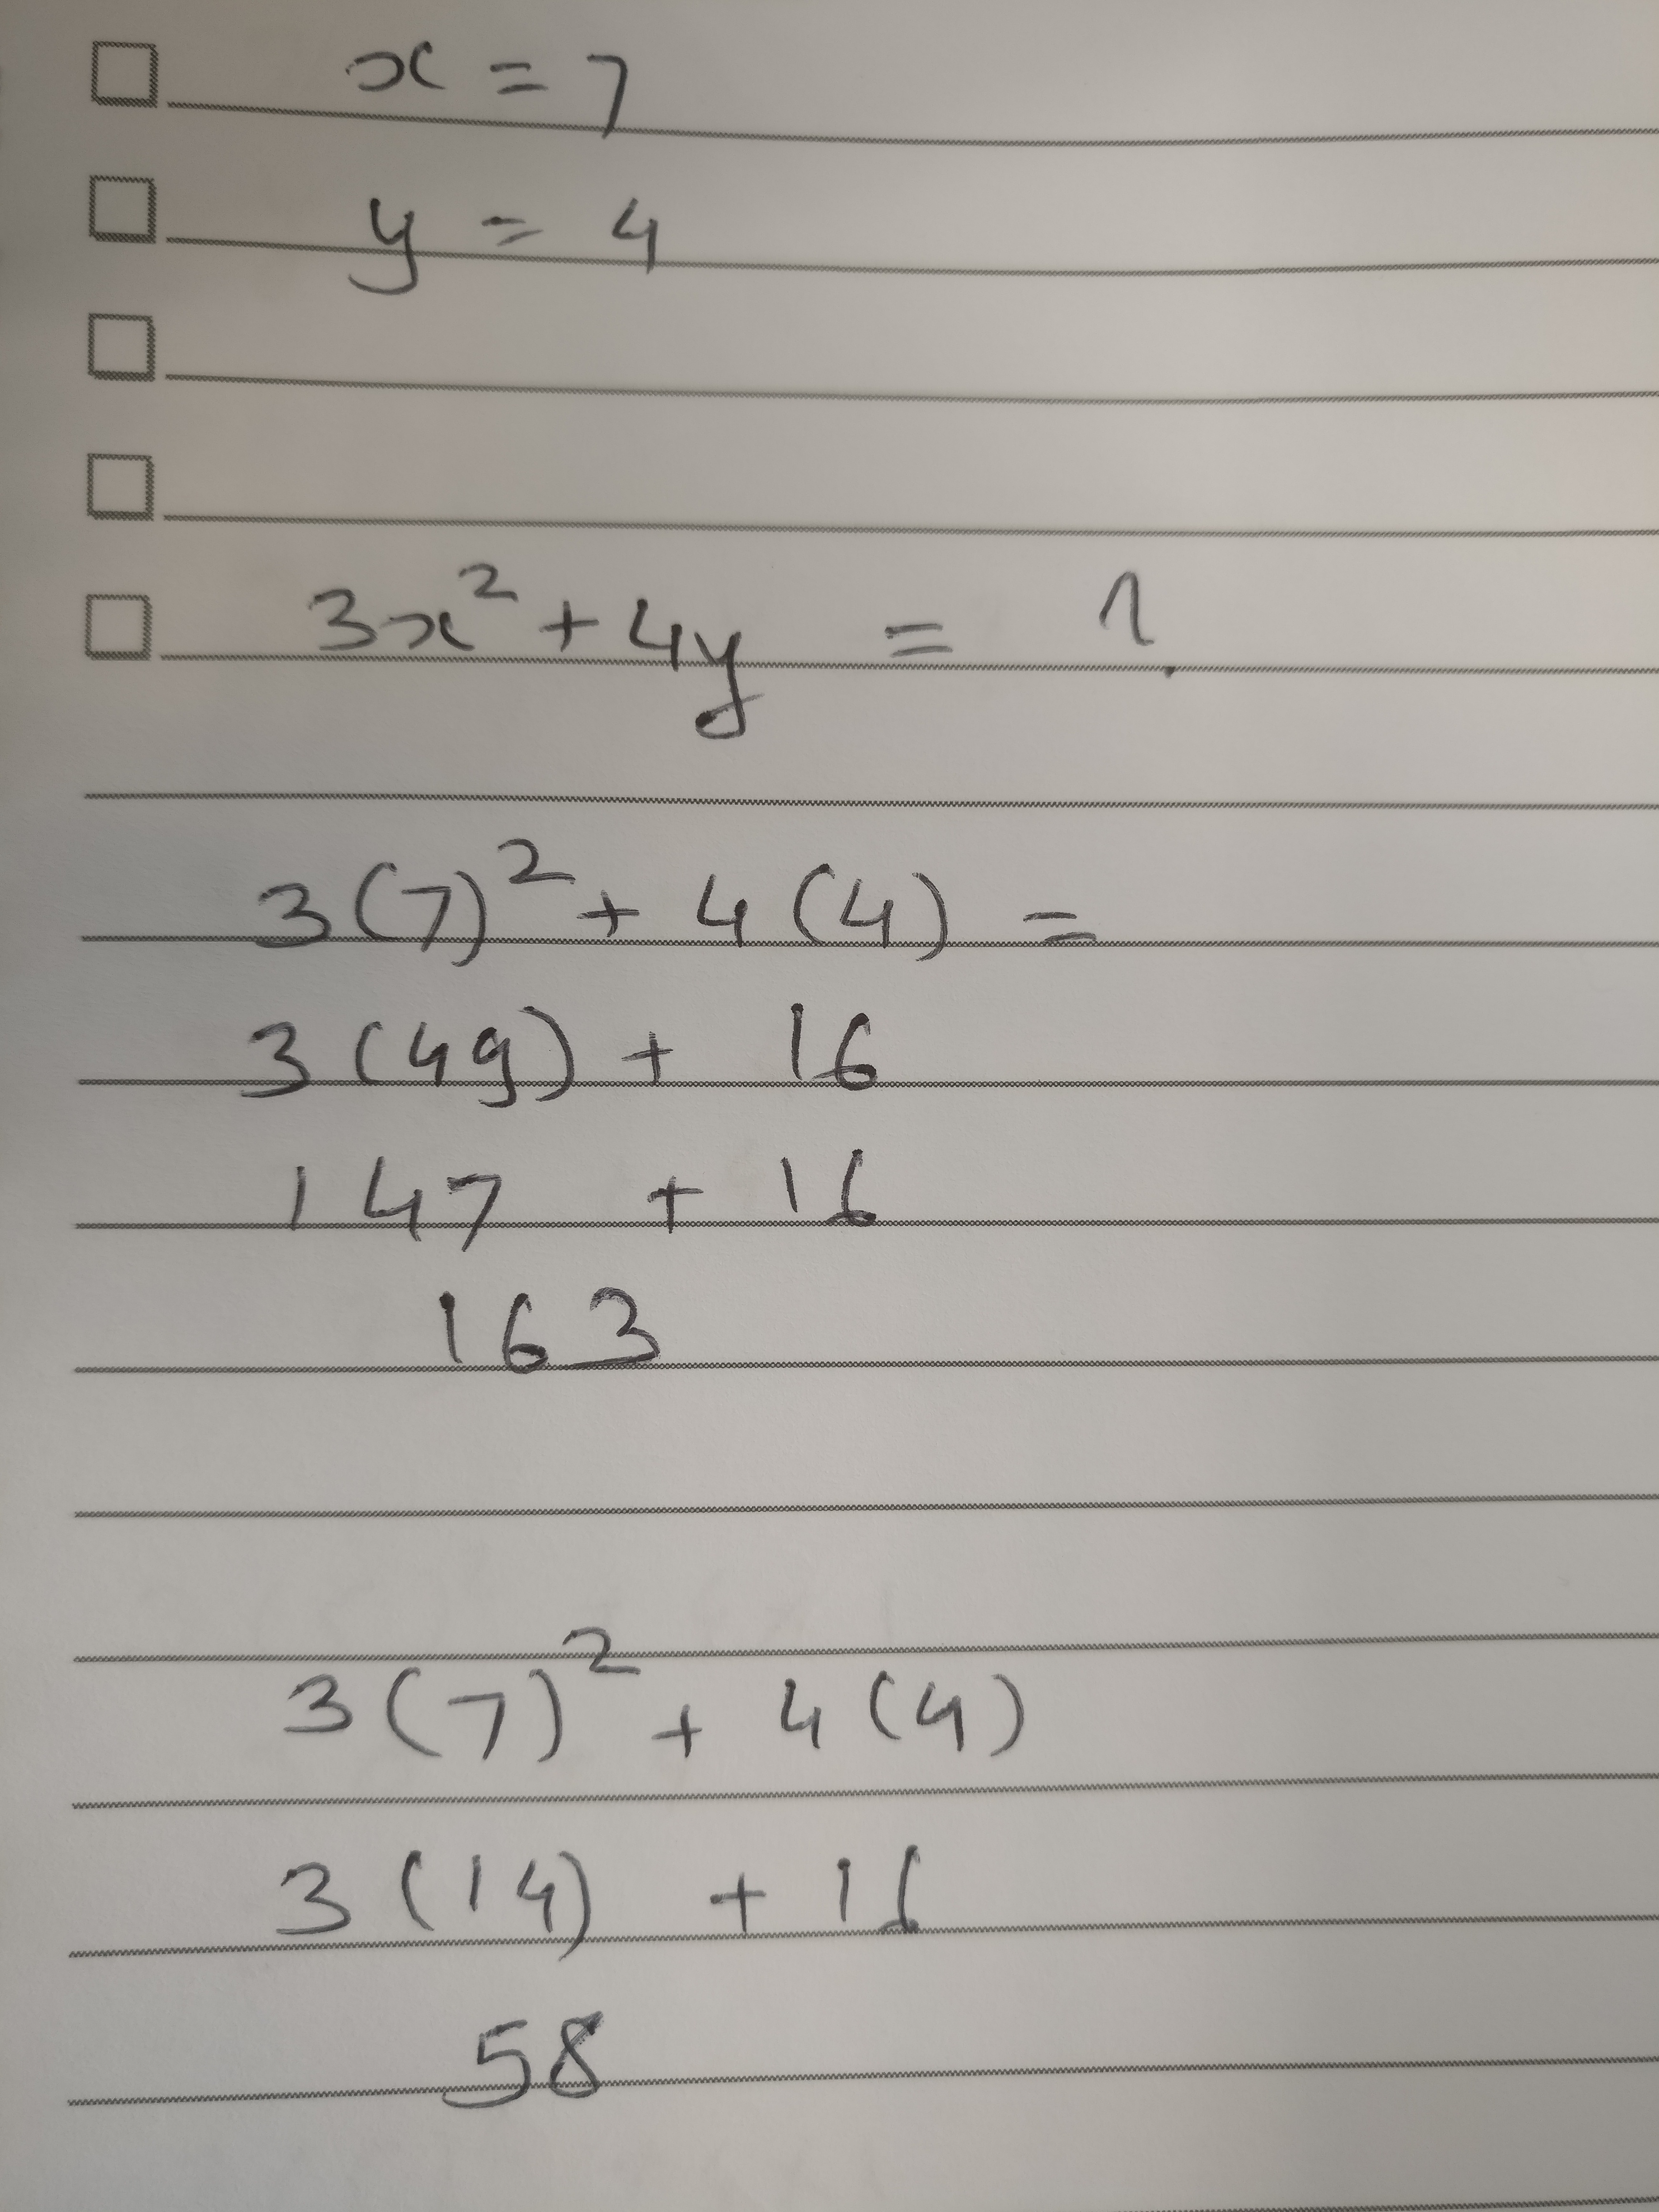 x = 7
y = 4
3x² + 4y = ?
3(7)² + 4(4) =
3(49) + 16
147 + 16
163
3(7)² + 4(4)
3(14) + 16
58